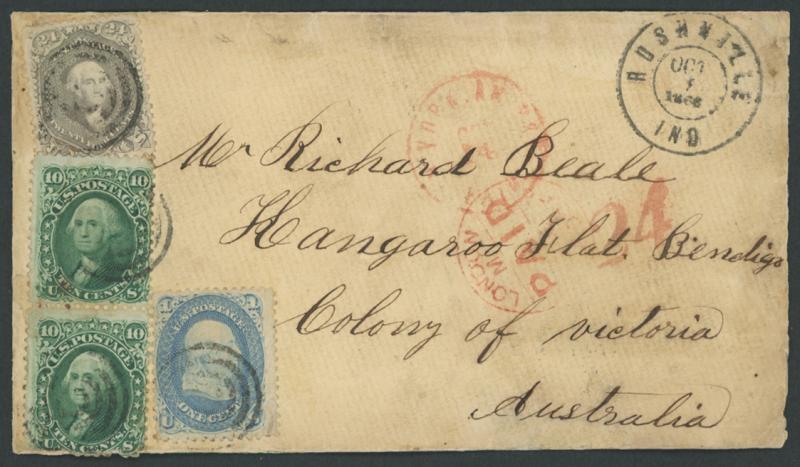 24 24
RUSHVILLE
OCT
1866
IND
YORK AM
Mr Richard Beale
10 10
U.S. POSTAGE
TEN CENTS
U S
LONDON
PAID
24
Kangaroo Flat. Bendigo
10 10
U.S. POSTAGE
TEN CENTS
U S
U.S. POSTAGE
ONE CENT
Colony of victoria
Australia